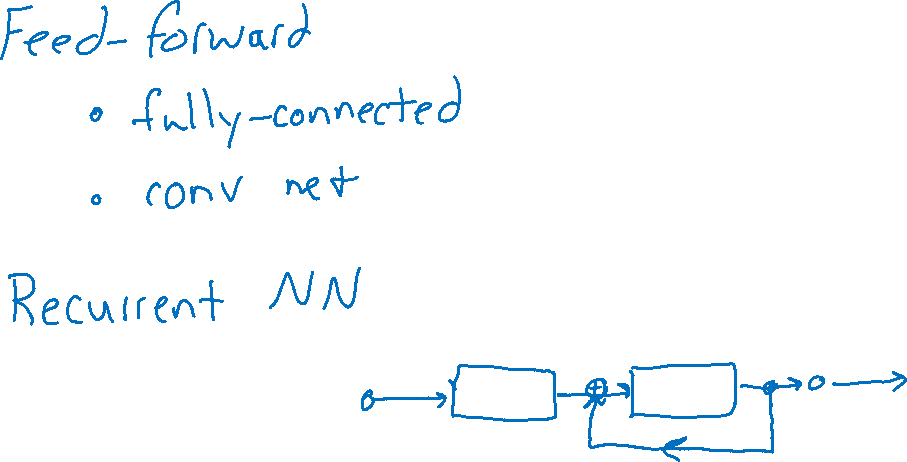 Feed-forward
• fully-connected
• conv net
Recurrent NN
+